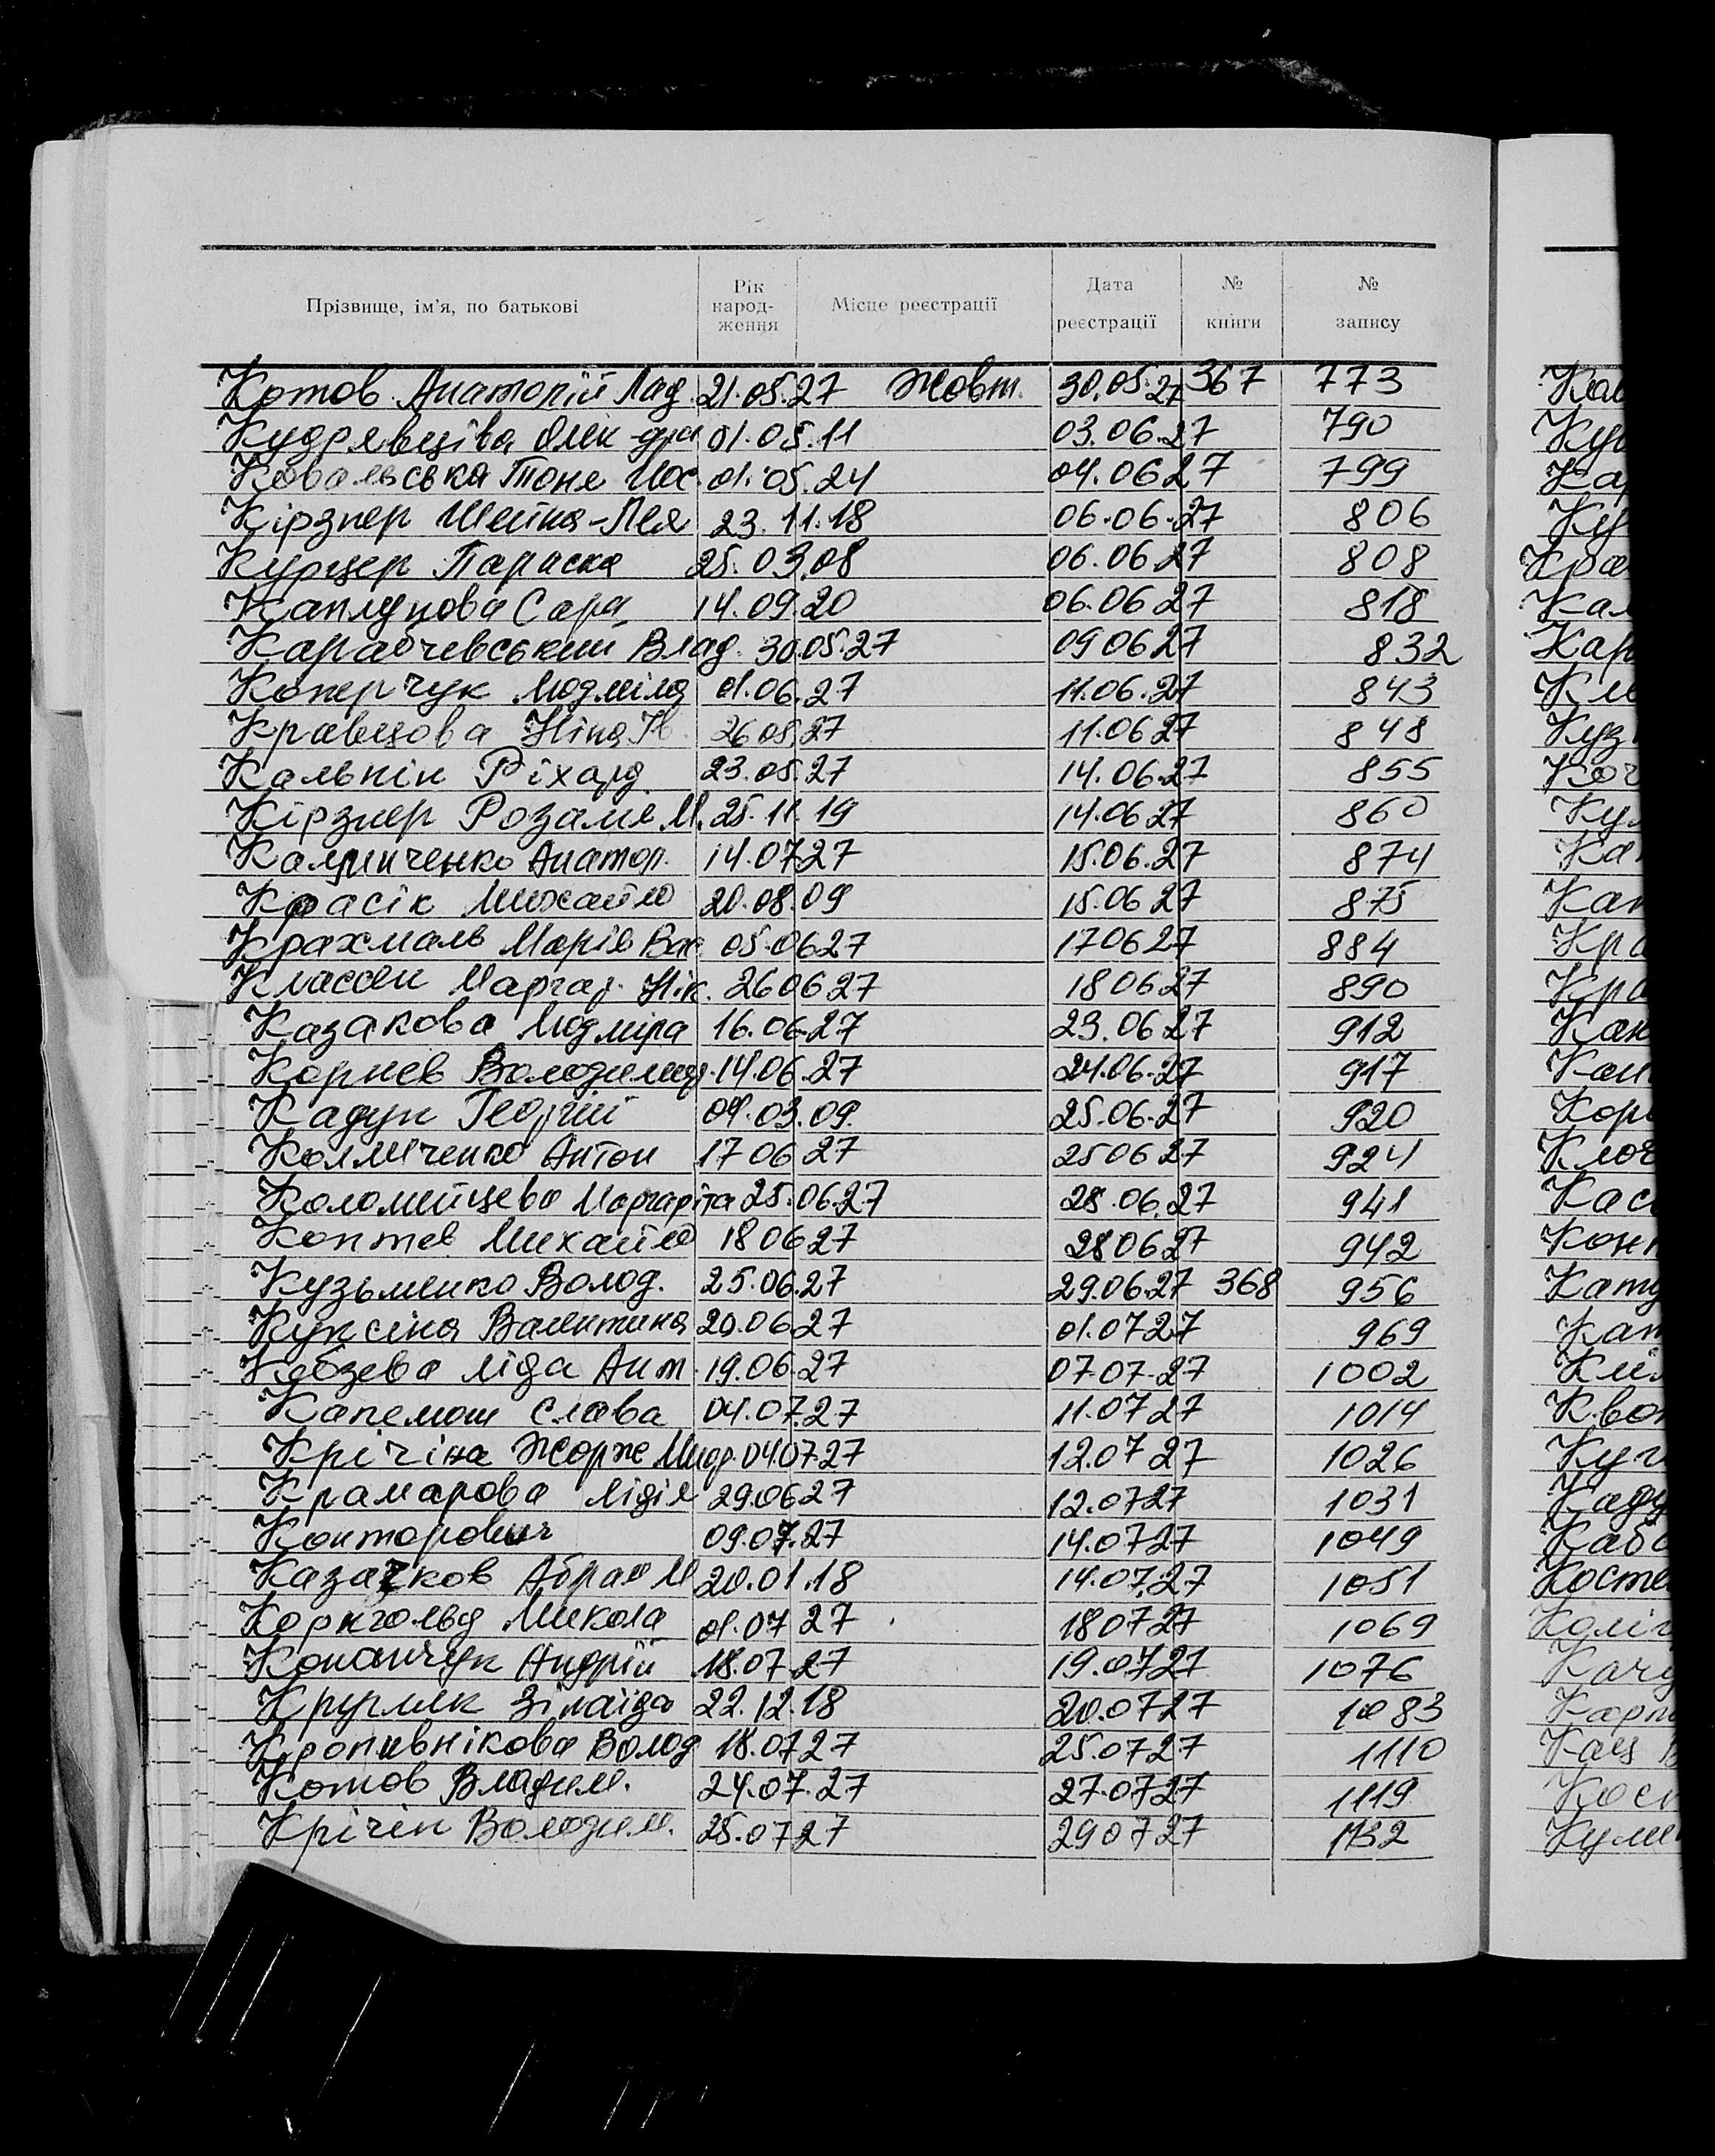 Прізвище, ім'я, по батькові Рік народження Місце реєстрації Дата реєстрації № книги № запису
Котов Анатолій Лад. 21.05.27 Жовт. 30.05.27 367 773
Кудрявціва Олек-дра 01.05.11 03.06.27 790
Ковальська Тоня Иос. 01.05.24 04.06.27 799
Кірзнер Шейна-Лея 23.11.18 06.06.27 806
Курцер Параска 25.03.08 06.06.27 808
Каплунова Сара 14.09.20 06.06.27 818
Карабчевський Влад. 30.05.27 09 06 27 832
Коперчук Людміла 01.06.27 11.06.27 843
Кравцова Ніна 26 05.27 11.06 27 848
Кальнін Ріхард 23.05.27 14.06.27 855
Кірзнер Розалія М. 25.11.19 14.06 27 860
Анатол. 14.07 27 15.06.27 874
Красік Михайло 20.08.09 15.06 27 875
Крахмаль Марія Вас. 05.06 27 17 06 27 884
Классен Маргар. Нік. 26 06 27 18 06 27 890
Казакова Людміла 16.06.27 23.06 27 912
Корнев Володимир. 14.06.27 24.06.27 917
Кадук Георгій 04.03.09. 25.06.27 920
Антон 17 06 27 25 06 27 924
Коломийцева Маргаріта 25.06.27 28.06.27 941
Коптев Михайло 18 06 27 28 06 27 942
Кузьменко Волод. 25.06.27 29.06.27 368 956
Куксіна Валентина 20.06 27 01.07 27 969
Кобзева Ліда Ант. 19.06.27 07.07.27 1002
Слава 04.07.27 11.07 27 1014
Крічіна Жорж 04.07.27 12.07 27 1026
Крамарова Лідія 29.06 27 12.07 27 1031
Канторович 09.07.27 14.07 27 1049
Казачков Абрам М 20.01.18 14.07.27 1051
Коркгольд Микола 01.07 27 18 07 27 1069
Копанчук Андрій 18.07 27 19.07.27 1076
Круглик Зінаїда 22.12.18 20.07 27 1083
Кропивнікова Волод 18.07 27 25.07 27 1110
Котов Владим. 24.07.27 27.07 27 1119
Крічін Володим. 25.07 27 29 07 27 1132